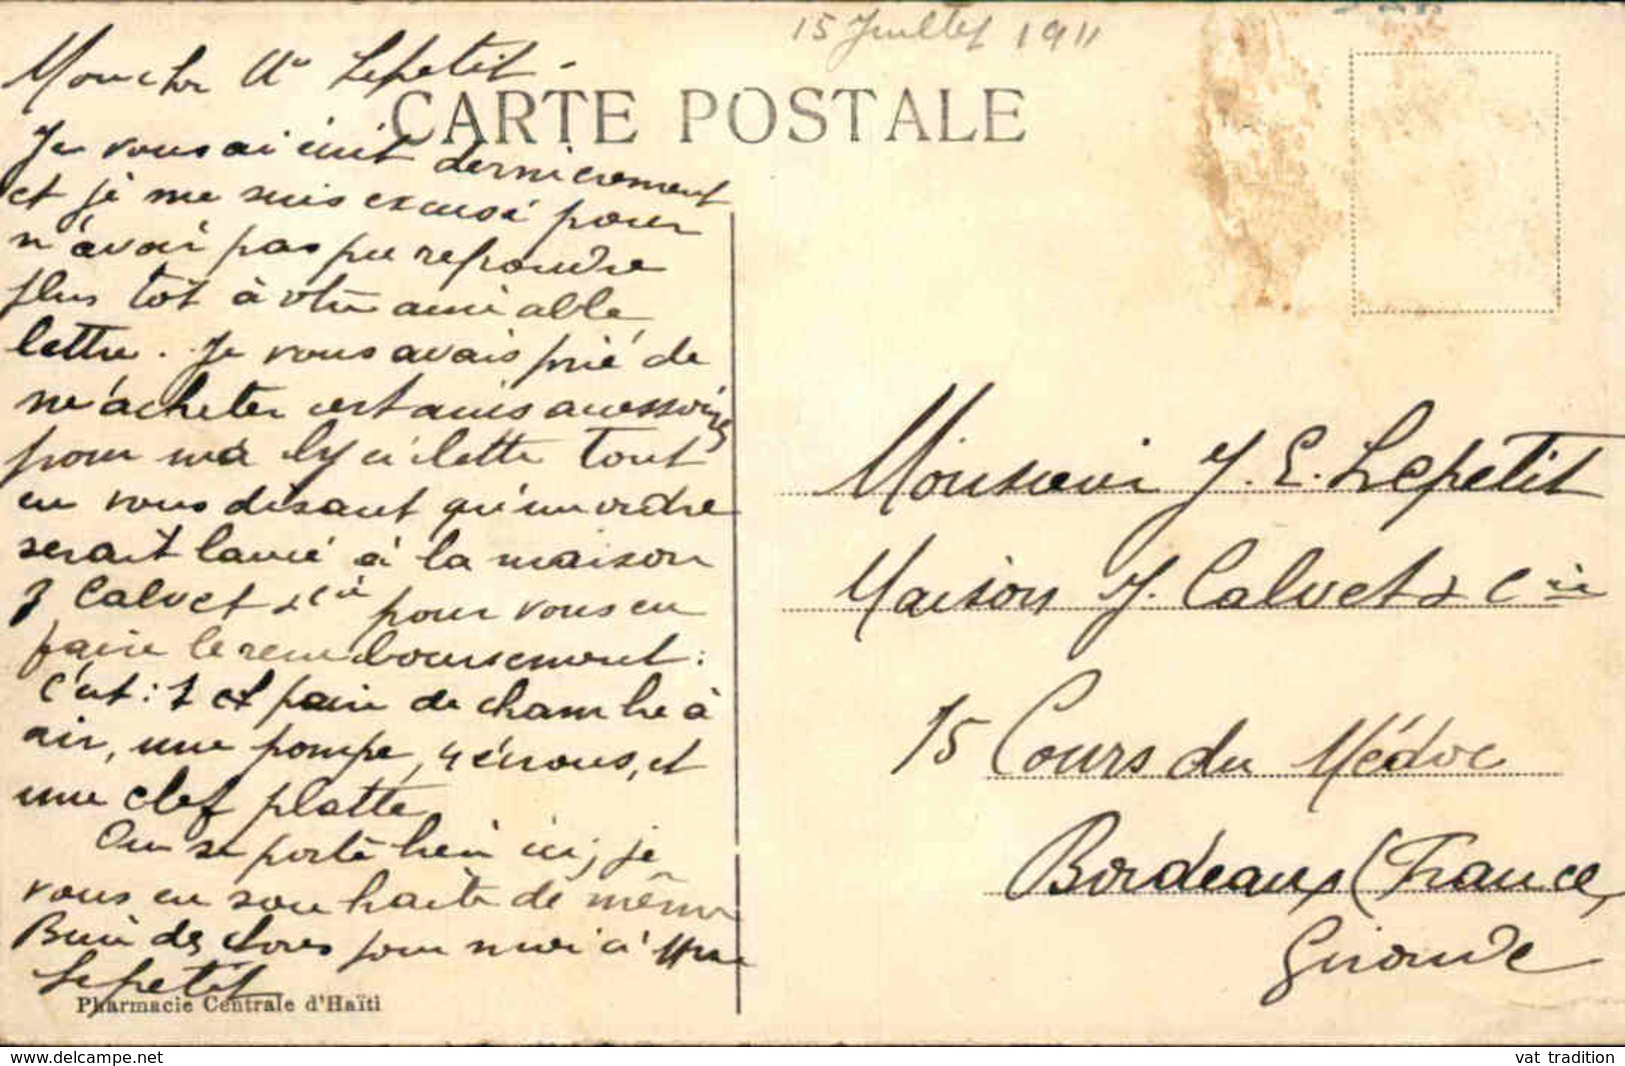 15 Juillet 1911
CARTE POSTALE
Mon cher Mr Lepetit -
Je vous ai écrit dernièrement
et je me suis excusé pour
n'avoir pas pu repondre
plus tôt à votre aimable
lettre. Je vous avais prié de
m'acheter certains accessoires
pour ma lettre tout
en vous disant qu'un ordre
serait lancé à la maison
J Calvet & Cie pour vous en
faire le remboursement :
C'est : 1 paire de chambre à
air, une pompe, 4 écrous, et
une clef platte
On se porte bien ici, je
vous en souhaite de même
Bien des choses pour moi à Mme
Lepetit
Pharmacie Centrale d'Haïti
Monsieur J. E. Lepetit
Maison J. Calvet & Cie
75 Cours du Médoc
Bordeaux (France)
Gironde
www.delcampe.net
vat tradition